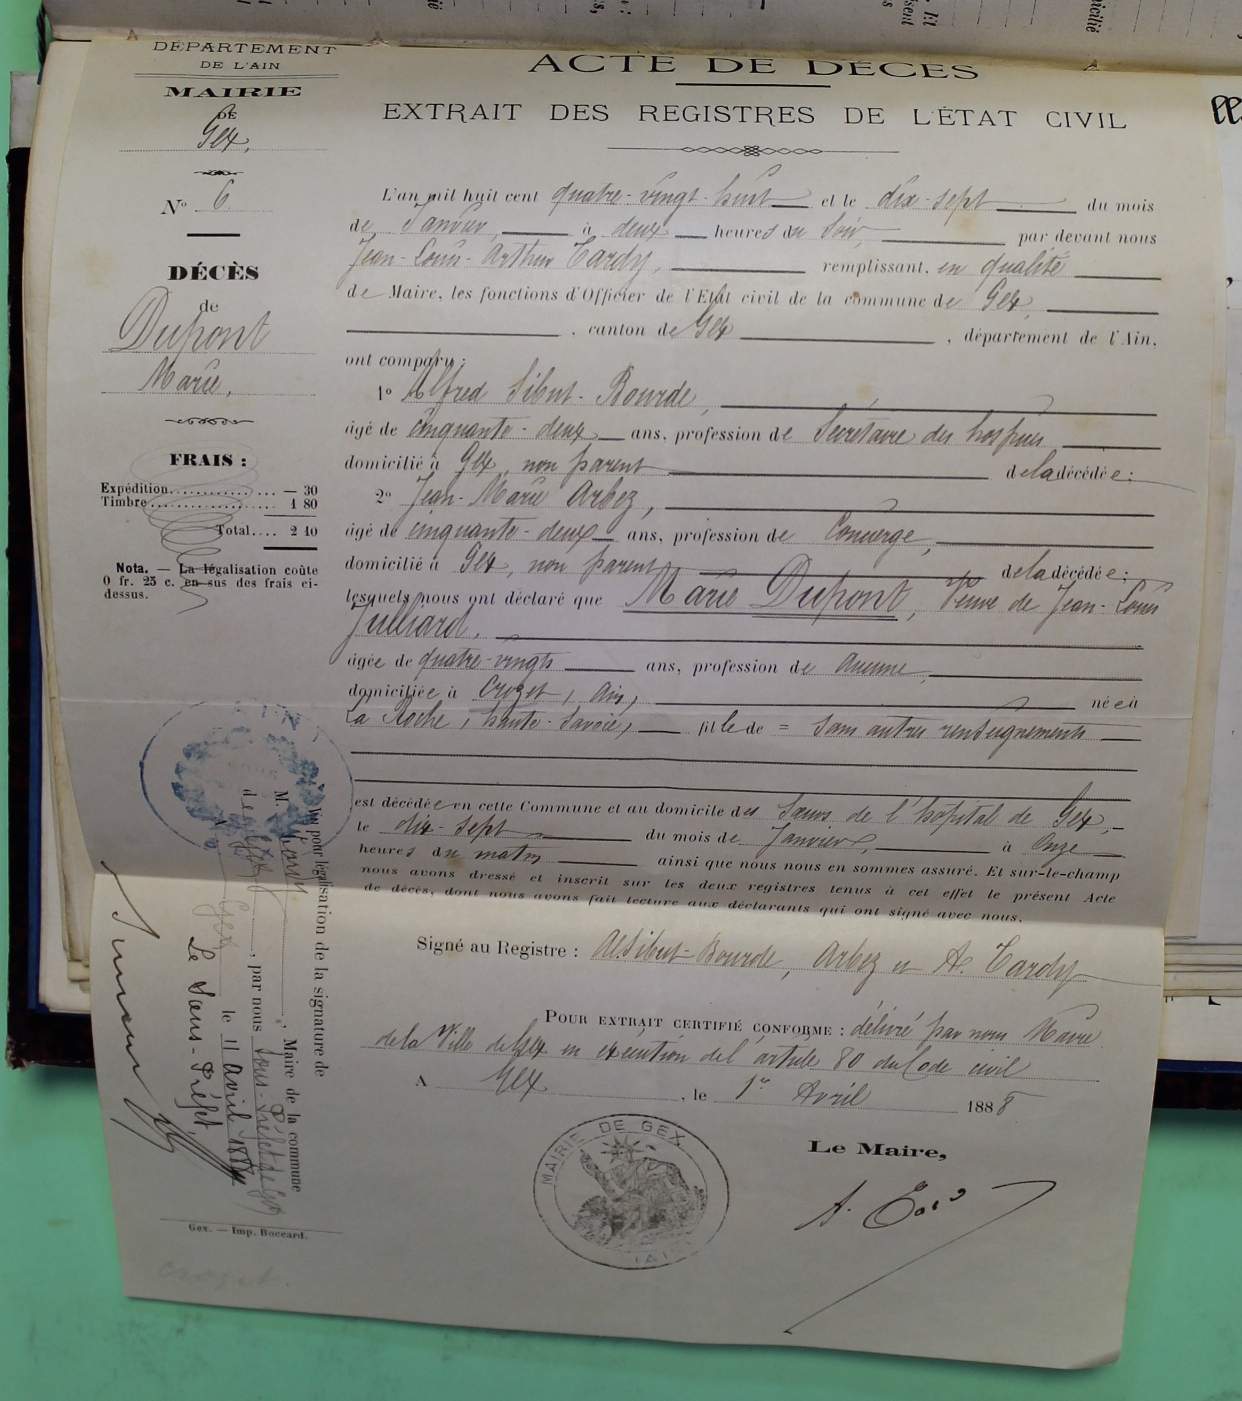 DÉPARTEMENT
DE L'AIN
MAIRIE
DE
Gex,
N° 6
DÉCÈS
de
Dupont
Marie,
FRAIS :
Expédition............ — 30
Timbre............ 1 80
Total.... 2 10
Nota. — La légalisation coûte
0 fr. 25 c. en sus des frais ci-
dessus.
ACTE DE DÉCÈS
EXTRAIT DES REGISTRES DE L'ÉTAT CIVIL
L'an mil huit cent quatre-vingt-huit et le dix-sept du mois
de Janvier, à deux heures du Soir, par devant nous
Jean-Louis-Arthur Tardy, remplissant, en qualité
de Maire, les fonctions d'Officier de l'Etat civil de la commune de Gex,
, canton de Gex , département de l'Ain,
ont comparu :
1° Alfred Sibut-Bourde,
âgé de cinquante-deux ans, profession de Secrétaire des hospices,
domicilié à Gex, non parent de la décédée :
2° Jean-Marie Arbez,
âgé de cinquante-deux ans, profession de Concierge,
domicilié à Gex, non parent de la décédée :
lesquels nous ont déclaré que Marie Dupont, Veuve de Jean-Louis
Julliard,
âgée de quatre-vingts ans, profession de aucune,
domiciliée à Crozet, Ain, née à
La Roche, haute-Savoie, fille de = sans autres renseignements
est décédée en cette Commune et au domicile des Sœurs de l'hôpital de Gex,
le dix-sept du mois de Janvier, à Onze
heures du matin ainsi que nous nous en sommes assuré. Et sur-le-champ
nous avons dressé et inscrit sur les deux registres tenus à cet effet le présent Acte
de décès, dont nous avons fait lecture aux déclarants qui ont signé avec nous.
Signé au Registre : A. Sibut-Bourde, Arbez et A. Tardy
POUR EXTRAIT CERTIFIÉ CONFORME : délivré par nous Maire
de la Ville de Gex en exécution de l'article 80 du Code civil
A Gex , le 1er Avril 1888
Le Maire,
MAIRIE DE GEX
(AIN)
Vu pour légalisation de la signature de
M. , Maire de la commune
de Gex , par nous Sous-Préfet de Gex
Gex le 11 Avril 188
Le Sous-Préfet,
Gex. — Imp. Boccard.
Crozet.